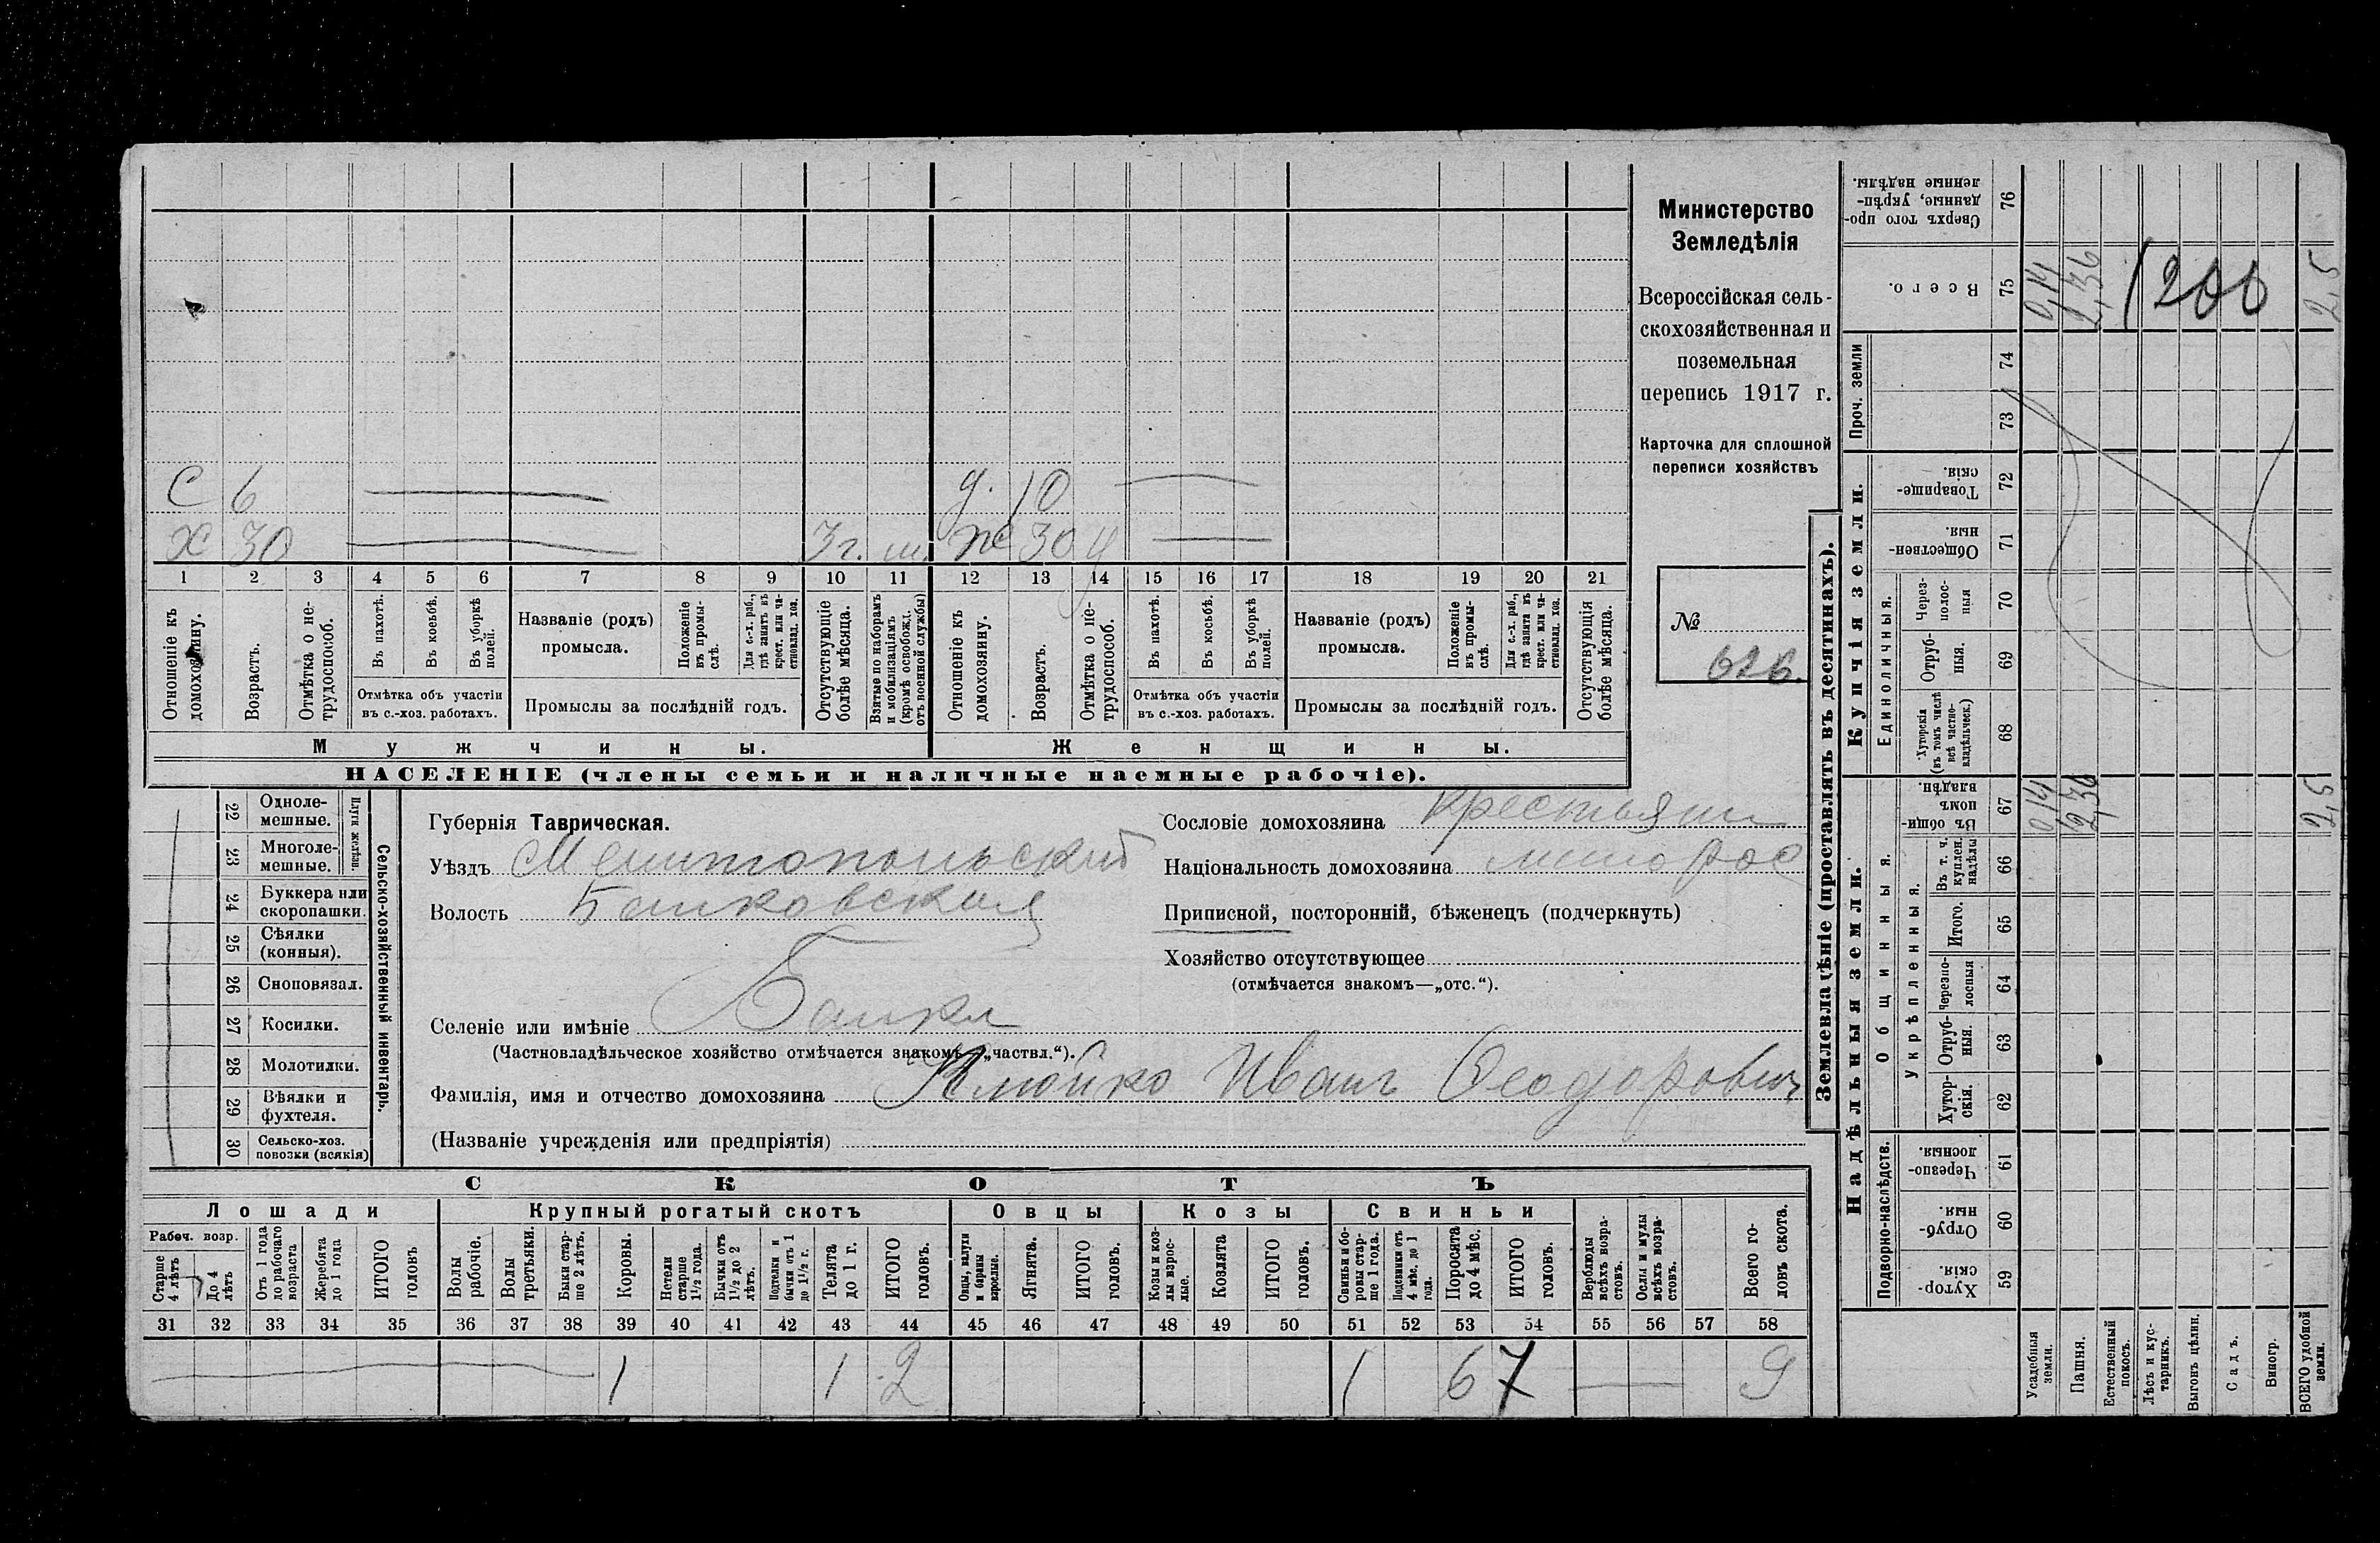 С 6 — д. 10 —
Х 30 — 3 г. ж 30
1 2 3 4 5 6 7 8 9 10 11 12 13 14 15 16 17 18 19 20 21
Отношеніе къ домохозяину.
Возрастъ.
Отмѣтка о не-
трудоспособ.
Въ пахотѣ.
Въ косьбѣ.
Въ уборкѣ полей.
Отмѣтка объ участіи
въ с.-хоз. работахъ.
Названіе (родъ)
промысла.
Положеніе въ промы-
слѣ.
Для с.-х. раб., гдѣ занятъ въ крест. или ча-
стновлад. хоз.
Промыслы за послѣдній годъ.
Отсутствующіе
болѣе мѣсяца.
Взятые по наборамъ
и мобилизаціямъ
(кромѣ освобожд.
отъ военной службы)
Отношеніе къ
домохозяину.
Возрастъ.
Отмѣтка о не-
трудоспособ.
Въ пахотѣ.
Въ косьбѣ.
Въ уборкѣ полей.
Отмѣтка объ участіи
въ с.-хоз. работахъ.
Названіе (родъ)
промысла.
Положеніе въ промы-
слѣ.
Для с.-х. раб., гдѣ занята въ крест. или ча-
стновлад. хоз.
Промыслы за послѣдній годъ.
Отсутствующія
болѣе мѣсяца.
Мужчины.
Женщины.
НАСЕЛЕНІЕ (члены семьи и наличные наемные рабочіе).
Министерство
Земледѣлія
Всероссійская сель-
скохозяйственная и
поземельная
перепись 1917 г.
Карточка для сплошной
переписи хозяйствъ
№
626.
22 Одноле-
мешные.
23 Многоле-
мешные.
Плуги желѣзн.
24 Буккера или
скоропашки.
25 Сѣялки
(конныя).
26 Сноповязал.
27 Косилки.
28 Молотилки.
29 Вѣялки и
фухтеля.
30 Сельско-хоз.
повозки (всякія)
Сельско-хозяйственный инвентарь.
Губернія Таврическая.
Уѣздъ Мелитопольскій
Волость Балковская
Селеніе или имѣніе Балки
(Частновладѣльческое хозяйство отмѣчается знакомъ „частвл.“).
Фамилія, имя и отчество домохозяина Клюйко Иванъ Ѳеодоровичъ
(Названіе учрежденія или предпріятія)
Сословіе домохозяина крестьянин
Національность домохозяина мало рос
Приписной, посторонній, бѣженецъ (подчеркнуть)
Хозяйство отсутствующее
(отмѣчается знакомъ—„отс.“).
СКОТЪ
Лошади Крупный рогатый скотъ Овцы Козы Свиньи
Рабоч. возр.
Старше 4 лѣтъ
До 4 лѣтъ
Отъ 1 года до рабочаго возраста
Жеребята до 1 года
ИТОГО головъ
Волы рабочіе.
Волы третьяки.
Быки стар-
ше 2 лѣтъ.
Коровы.
Нетели старше 1½ года.
Бычки отъ 1½ до 2 лѣтъ.
Подтелки и бычки отъ 1 до 1½ г.
Телята до 1 г.
ИТОГО головъ.
Овцы, валухи и бараны взрослые.
Ягнята.
ИТОГО головъ.
Козы и коз-
лы взрос-
лые.
Козлята
ИТОГО головъ.
Свиньи и бо-
ровы стар-
ше 1 года.
Подсвинки отъ 4 мѣс. до 1 года.
Поросята до 4 мѣс.
ИТОГО головъ.
Верблюды всѣхъ возра-
стовъ.
Ослы и мулы всѣхъ возра-
стовъ.
Всего го-
ловъ скота.
31 32 33 34 35 36 37 38 39 40 41 42 43 44 45 46 47 48 49 50 51 52 53 54 55 56 57 58
— 1 1 2 1 6 7 — 9
Землевладѣніе (проставлять въ десятинахъ).
Надѣльныя земли.
Купчія земли.
Проч. земли
Подворно-наслѣдств.
Общинныя.
Укрѣпленныя.
Единоличныя.
Хутор-
скія. 59
Отруб-
ныя. 60
Черезпо-
лосныя 61
Хутор-
скія. 62
Отруб-
ныя. 63
Черезпо-
лосныя 64
Итого. 65
Въ т. ч. куплен. надѣлы 66
Въ общин-
номъ владѣн. 67
Хуторскія (въ томъ числѣ всѣ частно-
владѣльческ.) 68
Отруб-
ныя. 69
Через-
полос-
ныя 70
Обществен-
ныя. 71
Товарище-
скія. 72
73
74
Всего. 75
Сверхъ того про-
данные, укрѣп-
ленные надѣлы. 76
Усадебныя земли. 0,14 0,14
Пашня. 2,36 2,36
Естественный покосъ.
Лѣсъ и кус-
тарникъ.
Выгонъ цѣлин.
Садъ.
Виногр.
ВСЕГО удобной земли. 2,5 2,5
1200